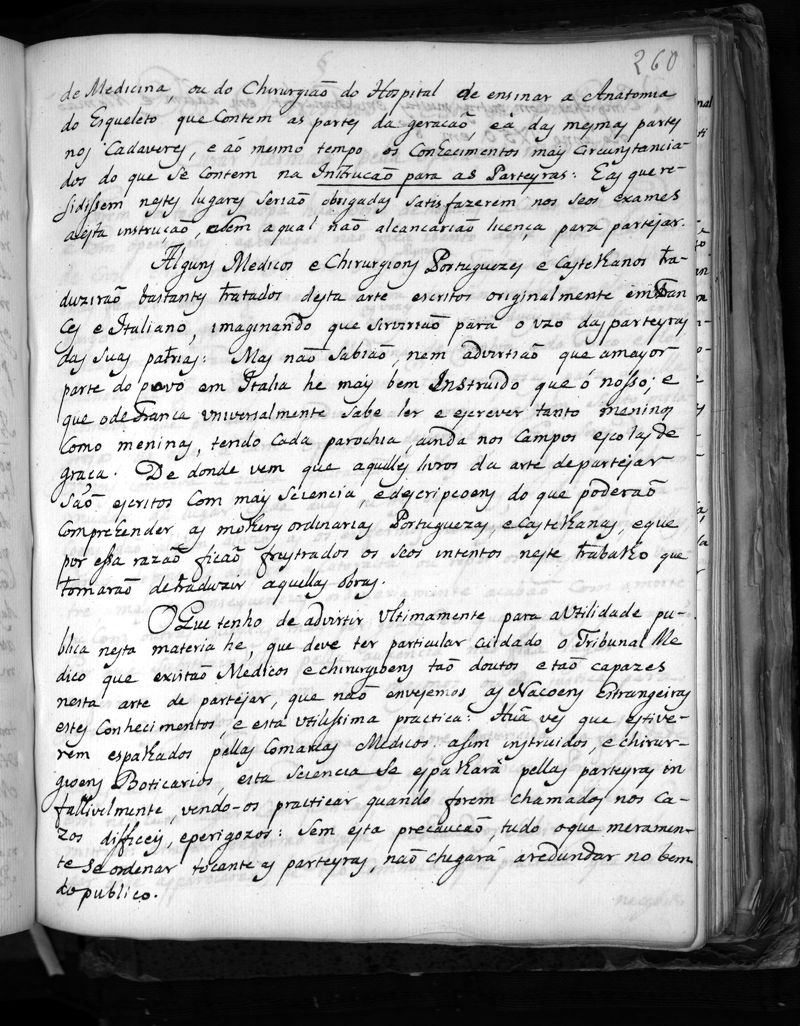 260
de Medicina, ou do Chirurgião do Hospital de ensinar a Anatomia
do Esqueleto que Contem as partes da geracaõ, e à das mesmas partes
nos Cadaveres, e aó mesmo tempo os Conhecimentos mais Circunstancia-
dos do que se Contem na Instrucaõ para as Parteyras: E as que re-
sidissem nestes lugares seriaõ obrigadas satisfazerem nos seos exames
a esta instruçaõ, sem a qual naõ alcancariaõ licença para partejar.
Alguns Medicos e Chirurgions Portuguezes e Castelhanos tra-
duziraõ bastantes tratados desta arte escritos originalmente em Fran
Ces e Italiano, imaginando que sirviriaõ para o uzo das parteyras
das suas patrias: Mas naõ sabiaõ, nem advirtiaõ que amayor
parte do povo em Italia he mais bem Instruido que ó nosso; e
que o de França Vniversalmente sabe ler e escrever tanto meninos
Como meninas, tendo Cada parochia, ainda nos Campos escolas de
graça. De donde vem que aquelles livros da arte de partejar
saõ escritos Com mais sciencia, e descripcoens do que poderaõ
Comprehender as molheres ordinarias Portuguezas, e Castelhanas, e que
por essa razaõ ficaõ frustrados os seos intentos neste trabalho que
tomaraõ de traduzir aquellas obras.
O Que tenho de advirtir Vltimamente para a Vtilidade pu-
blica nesta materia he, que deve ter particular cuidado o Tribunal Me
dico que existaõ Medicos e chirurgioens taõ doutos e taõ capazes
nesta arte de partejar, que naõ envejemos as Nacoens Estrangeiras
estes Conhecimentos, e esta Vtilissima practica: Huã ves que estive-
rem espalhados pellas Comarcas Medicos assim instruidos, e chirur-
gioens Boticarios, esta sciencia se espalhará pellas parteyras in
fallivelmente, vendo-os practicar quando forem chamados nos Ca-
zos difficeis, e perigozos: Sem esta precaucaõ, tudo o que meramen-
te se ordenar tocante as parteyras, naõ chegará a redundar no bem
do publico.